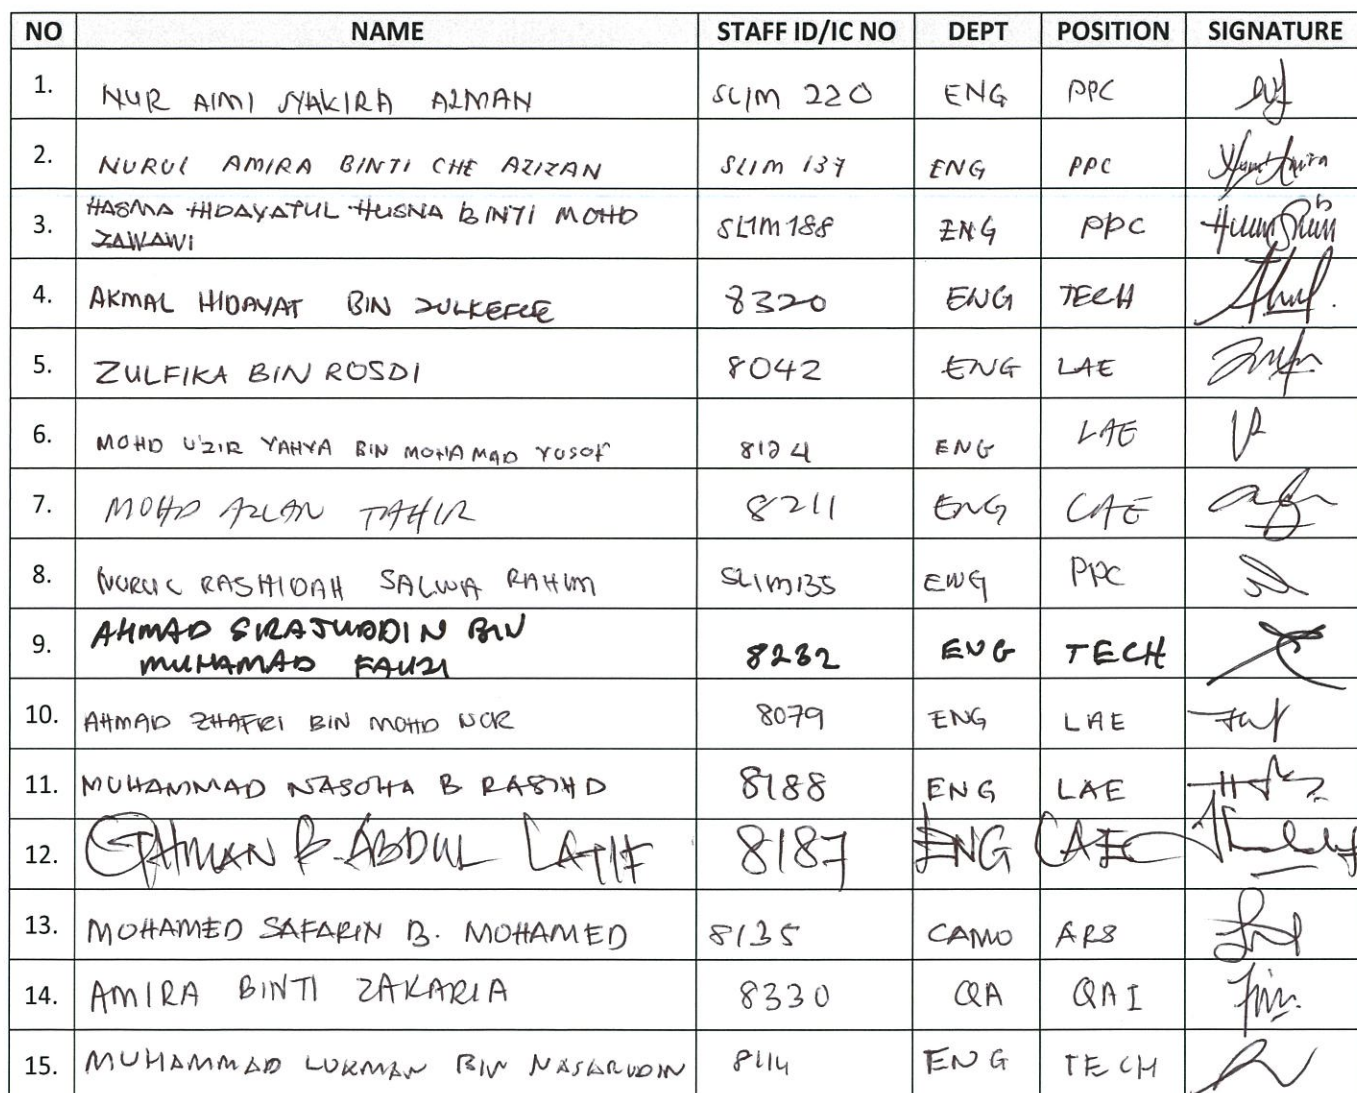 NO NAME STAFF ID/IC NO DEPT POSITION SIGNATURE
1. NUR AIMI SYAKIRA AZMAN SLIM 220 ENG PPC
2. NURUL AMIRA BINTI CHE AZIZAN SLIM 137 ENG PPC
3. HASMA HIDAYATUL HUSNA BINTI MOHD
ZAWAWI SLIM188 ENG PPC
4. AKMAL HIDAYAT BIN ZULKEFLE 8320 ENG TECH
5. ZULFIKA BIN ROSDI 8042 ENG LAE
6. MOHD U'ZIR YAHYA BIN MOHAMAD YUSOF 8124 ENG LAE
7. MOHD AZLAN TAHIR 8211 ENG LAE
8. NURUL RASHIDAH SALWA RAHIM SLIM135 ENG PPC
9. AHMAD SIRAJUDDIN BIN
MUHAMAD FAUZI 8232 ENG TECH
10. AHMAD ZHAFRI BIN MOHD NOR 8079 ENG LAE
11. MUHAMMAD NASOHA B RASHID 8188 ENG LAE
12. OTHMAN B. ABDUL LATIF 8187 ENG LAE
13. MOHAMED SAFARIN B. MOHAMED 8135 CAMO ARS
14. AMIRA BINTI ZAKARIA 8330 QA QAI
15. MUHAMMAD LUKMAN BIN NASARUDIN 8114 ENG TECH